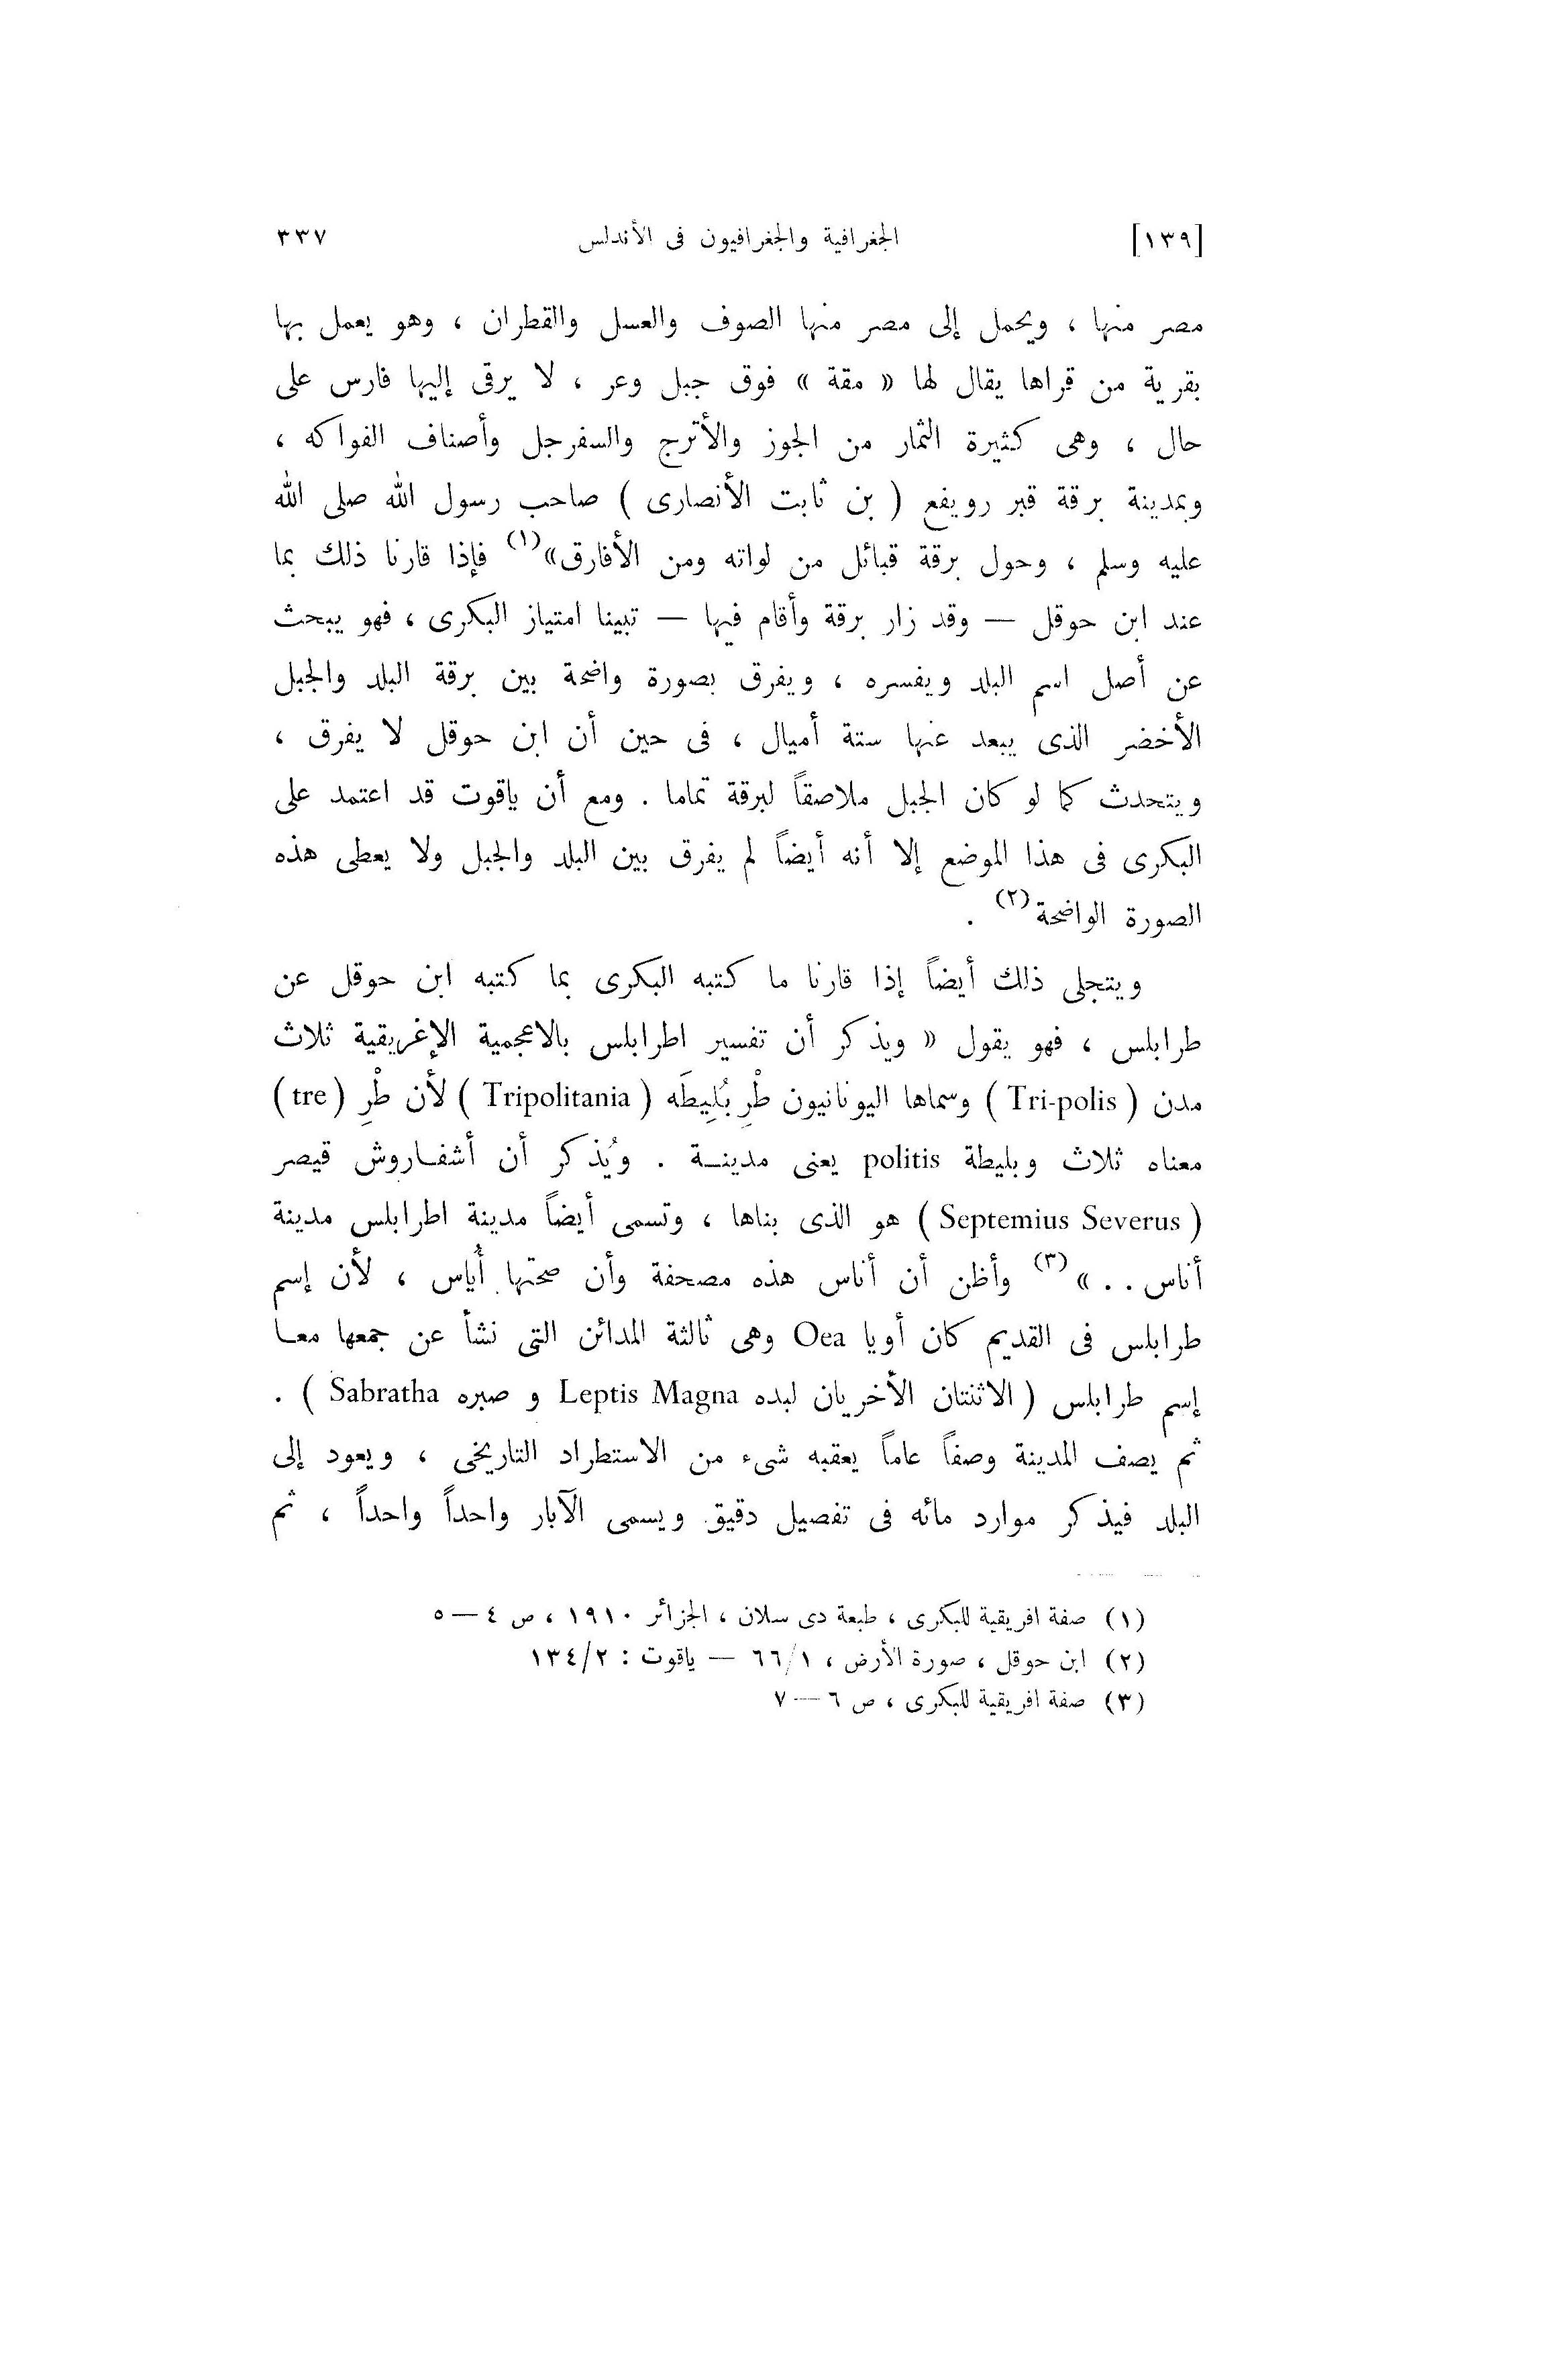 [١٣٩] الجغرافية والجغرافيون فى الأندلس ٣٣٧
مصر منها ، ويحمل إلى مصر منها الصوف والعسل والقطران ، وهو يعمل بها
بقرية من قراها يقال لها « مقة » فوق جبل وعر ، لا يرقى إليها فارس على
حال ، وهى كثيرة الثمار من الجوز والأترج والسفرجل وأصناف الفواكه ،
وبمدينة برقة قبر رويفع ( بن ثابت الأنصارى ) صاحب رسول الله صلى الله
عليه وسلم ، وحول برقة قبائل من لواته ومن الأفارق»(١) فإذا قارنا ذلك بما
عند ابن حوقل — وقد زار برقة وأقام فيها — تبينا امتياز البكرى ، فهو يبحث
عن أصل اسم البلد ويفسره ، ويفرق بصورة واضحة بين برقة البلد والجبل
الأخضر الذى يبعد عنها ستة أميال ، فى حين أن ابن حوقل لا يفرق ،
ويتحدث كما لو كان الجبل ملاصقاً لبرقة تماما . ومع أن ياقوت قد اعتمد على
البكرى فى هذا الموضع إلا أنه أيضاً لم يفرق بين البلد والجبل ولا يعطى هذه
الصورة الواضحة(٢) .
ويتجلى ذلك أيضاً إذا قارنا ما كتبه البكرى بما كتبه ابن حوقل عن
طرابلس ، فهو يقول « ويذكر أن تفسير اطرابلس بالاعجمية الإغريقية ثلاث
مدن ( Tri-polis ) وسماها اليونانيون طْرِ بُلِيطَه ( Tripolitania ) لأن طْرِ ( tre )
معناه ثلاث وبليطة politis يعنى مدينـة . ويُذكر أن أشفـاروش قيصر
( Septemius Severus ) هو الذى بناها ، وتسمى أيضاً مدينة اطرابلس مدينة
أناس . . » (٣) وأظن أن أناس هذه مصحفة وأن صحتها أُياس ، لأن إسم
طرابلس فى القديم كان أويا Oea وهى ثالثة المدائن التى نشأ عن جمعها معـا
إسم طرابلس ( الاثنتان الأخريان لبده Leptis Magna و صبره Sabratha ) .
ثم يصف المدينة وصفاً عاماً يعقبه شىء من الاستطراد التاريخى ، ويعود إلى
البلد فيذكر موارد مائه فى تفصيل دقيق ويسمى الآبار واحداً واحداً ، ثم
(١) صفة افريقية للبكرى ، طبعة دى سلان ، الجزائر ١٩١٠ ، ص ٤ — ٥
(٢) ابن حوقل ، صورة الأرض ، ٦٦/١ — ياقوت : ١٣٤/٢
(٣) صفة افريقية للبكرى ، ص ٦ — ٧